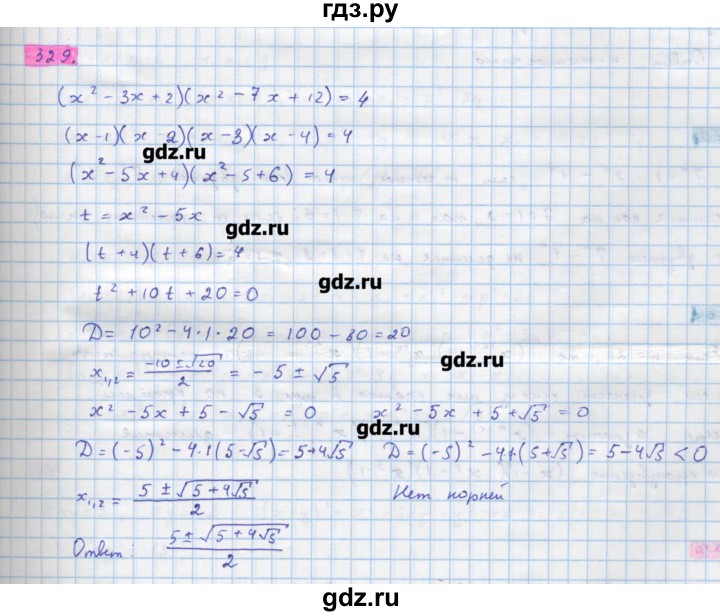 гдз.ру
329.
(x² - 3x + 2)(x² - 7x + 12) = 4
(x - 1)(x - 2)(x - 3)(x - 4) = 4
gdz.ru
(x² - 5x + 4)(x² - 5 + 6) = 4
t = x² - 5x
gdz.ru
(t + 4)(t + 6) = 4
gdz.ru
t² + 10t + 20 = 0
D = 10² - 4·1·20 = 100 - 80 = 20
gdz.ru
x₁,₂ = (-10 ± √20)/2 = - 5 ± √5
x² - 5x + 5 - √5 = 0 x² - 5x + 5 + √5 = 0
gdz.ru
D = (-5)² - 4·1(5 - √5) = 5 + 4√5 D = (-5)² - 4·1·(5 + √5) = 5 - 4√5 < 0
gdz.ru
x₁,₂ = (5 ± √(5 + 4√5))/2 Нет корней
gdz.ru
Ответ: (5 ± √(5 + 4√5))/2
gdz.ru
gdz.ru